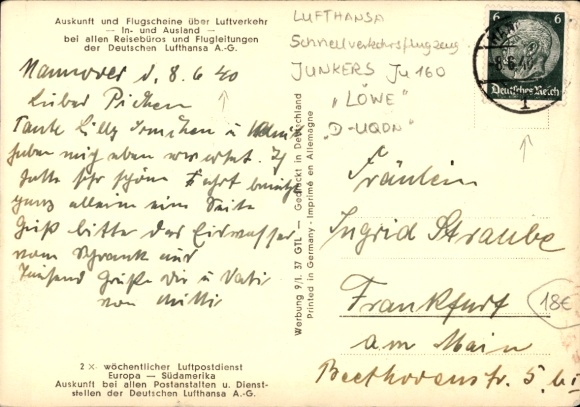 Auskunft und Flugscheine über Luftverkehr
— In- und Ausland —
bei allen Reisebüros und Flugleitungen
der Deutschen Lufthansa A.-G.
LUFTHANSA
Schnellverkehrsflugzeug
JUNKERS Ju 160
„LÖWE"
„D-UQON"
6 6
Deutsches Reich
8.6.40
1
Hannover d. 8.6.40
Tante Lilly
haben mich eben erwartet. Ich
hatte sehr schöne Fahrt
ganz allein eine Seite
Gieß bitte das
vom Schrank und
Tausend Grüße Dir u Vati
von Mutti
Werbung 9/I. 37 GTL — Gedruckt in Deutschland
Printed in Germany - Imprimé en Allemagne
Fräulein
Ingrid Straube
Frankfurt
am Main
Beethovenstr. 5
18€
2 x wöchentlicher Luftpostdienst
Europa — Südamerika
Auskunft bei allen Postanstalten u. Dienst-
stellen der Deutschen Lufthansa A.-G.